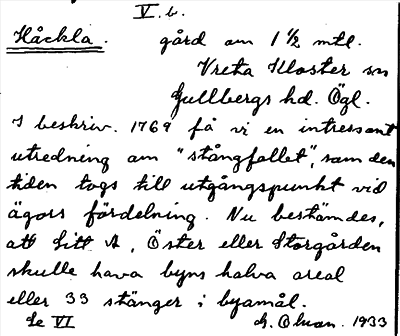 V. b.
Håckla. gård om 1 1/2 mtl.
Vreta Kloster sn
Gullbergs hd. Ögl.
I beskriv. 1769 få vi en intressant
utredning om "stångfallet", som den
tiden togs till utgångspunkt vid
ägors fördelning. Nu bestämdes,
att Litt A, Öster eller Storgården
skulle hava byns halva areal
eller 33 stänger i byamål.
Se VI G. Ohson. 1933